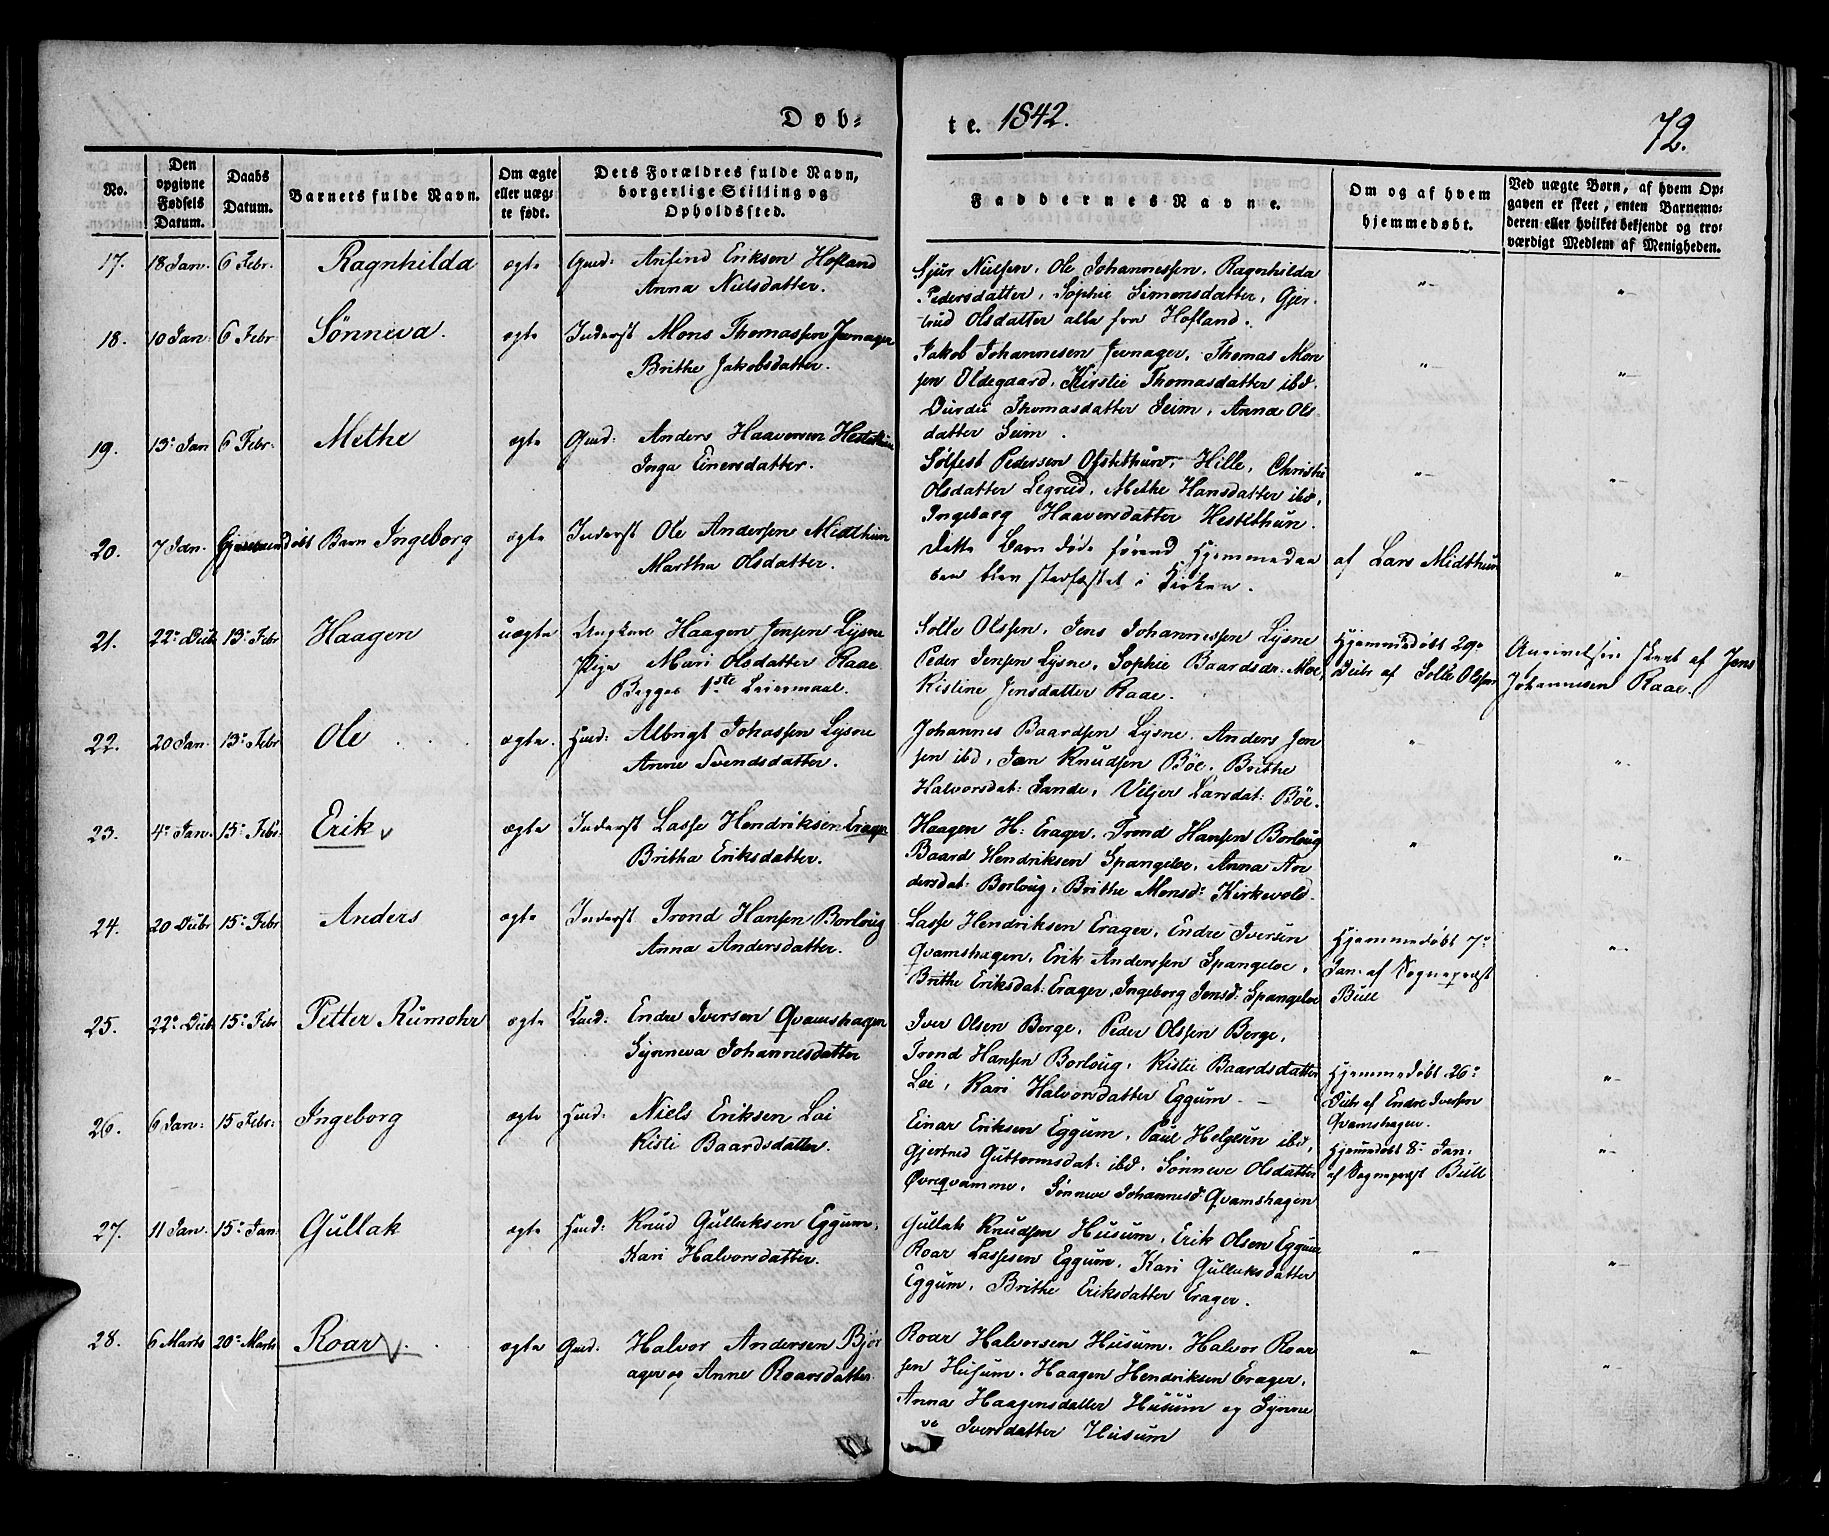 Døb-
te. 1842.
72.
No.
Den opgivne Fødsels Datum.
Daabs Datum.
Barnets fulde Navn.
Om ægte eller uægte født.
Dets Forældres fulde Navn, borgerlige Stilling og Opholdssted.
Faddernes Navne.
Om og af hvem hjemmedøbt.
Ved uægte Børn, af hvem Opgaven er skeet, enten Barnemoderen eller hvilket bekjendt og troværdigt Medlem af Menigheden.
17. 18 Jan. 6 Febr. Ragnhilda ægte Gmd: Arifind Eriksen Hofland
Anna Nielsdatter.
Sjur Nielsen, Ole Johannessen, Ragnhilda
Pedersdatter, Sophie Simonsdatter, Gjer-
trud Olsdatter alle fra Hofland.
18. 10 Jan. 6 Febr Sønneva. ægte Inderst Mons Thomassen Jernager
Brithe Jakobsdatter.
Jakob Johannesen Jernager, Thomas Mon-
sen Oldegaard, Kirstie Thomasdatter ibd.
Durdei Thomasdatter Seim, Anna Ols-
datter Seim.
19. 13 Jan 6 Febr. Methe ægte Gmd: Anders Haaversen Hestethun
Inga Einersdatter.
Sølfest Pedersen Ofstethun, Hille, Christie
Olsdatter Legreid, Methe Hansdatter ibd,
Ingeborg Haaversdatter Hestethun.
20. 7 Jan. Hjemmedøbt Barn Ingeborg ægte Inderst Ole Andersen Midthun
Martha Olsdatter.
Dette Barn døde førend Hjemmedaa-
ben blev stadfæstet i Kirken.
af Lars Midthun
21. 22 Decbr 13 Febr Haagen uægte Ungkarl Haagen Jensen Lysne
Pige Mari Olsdatter Raae
Begges 1ste Leiermaal.
Solte Olssen, Jens Johannessen Lysne
Peder Jensen Lysne, Sophie Baardsdr. Moe,
Kistine Jensdatter Raae.
Hjemmedøbt 29
Decbr af Solte Olsen
Anvielsen skeet af Jens
Johannesen Raae.
22. 20 Jan. 13 Febr Ole ægte. Hmd: Albrigt Johassen Lysne
Anne Svendsdatter.
Johannes Baardsen Lysne, Anders Jen-
sen ibd, Jan Knudsen Bøe, Brithe
Halvorsdat: Sande, Viljer Larsdat: Bøe.
23. 4 Jan. 15 Febr. Erik ægte Inderst Lasse Hendriksen Erager
Britha Eriksdatter.
Haagen H: Erager, Trond Hansen Borloug
Baard Hendriksen Spangeloe, Anna An-
dersdat: Borloug, Brithe Monsd: Kirkevold.
24. 20 Decbr 15 Febr Anders ægte Inderst Trond Hansen Borloug
Anna Andersdatter.
Lasse Hendriksen Erager, Endre Iversen
Qvamshagen, Erik Anderssen Spangeloe,
Brithe Eriksdat: Erager, Ingeborg Jensd: Spangeloe
Hjemmedøbt 7
Jan. af Sognepræst
Bull
25. 22 Decbr 15 Febr Petter Rumohr ægte Hmd: Endre Iversen Qvamshagen
Synneva Johannesdatter
Iver Olsen Berge, Peder Olssen Berge,
Trond Hansen Borloug, Kistie Baardsdatter
Loi, Kari Halvorsdatter Eggum.
Hjemmedøbt 26
Decbr af Endre Iversen
Qvamshagen.
26. 6 Jan: 15 Febr: Ingeborg ægte Hmd: Niels Eriksen Loi
Kisti Baardsdatter.
Einar Eriksen Eggum, Paul Helgesen ibd,
Gjertrud Guttormsdat: ibd, Sønneve Olsdatter
Øvreqvamme, Sønneve Johannesd: Qvamshagen
Hjemmedøbt 8 Jan.
af Sognepræst Bull
27. 11 Jan. 15 Jan. Gullak ægte Hmd: Knud Gullaksen Eggum,
Kari Halvorsdatter.
Gullak Knudsen Husum, Erik Olsen Eggum
Roar Lassesen Eggum, Kari Gullaksdatter
Eggum, Brithe Eriksdatter Erager.
28. 6 Marts 20 Marts Roar. ægte Gmd: Halvor Andersen Bjør-
ager og Anne Roarsdatter.
Roar Halvorsen Husum, Halvor Roar-
sen Husum, Haagen Hendriksen Erager,
Anna Haagensdatter Husum og Synne-
ve Iversdatter Husum